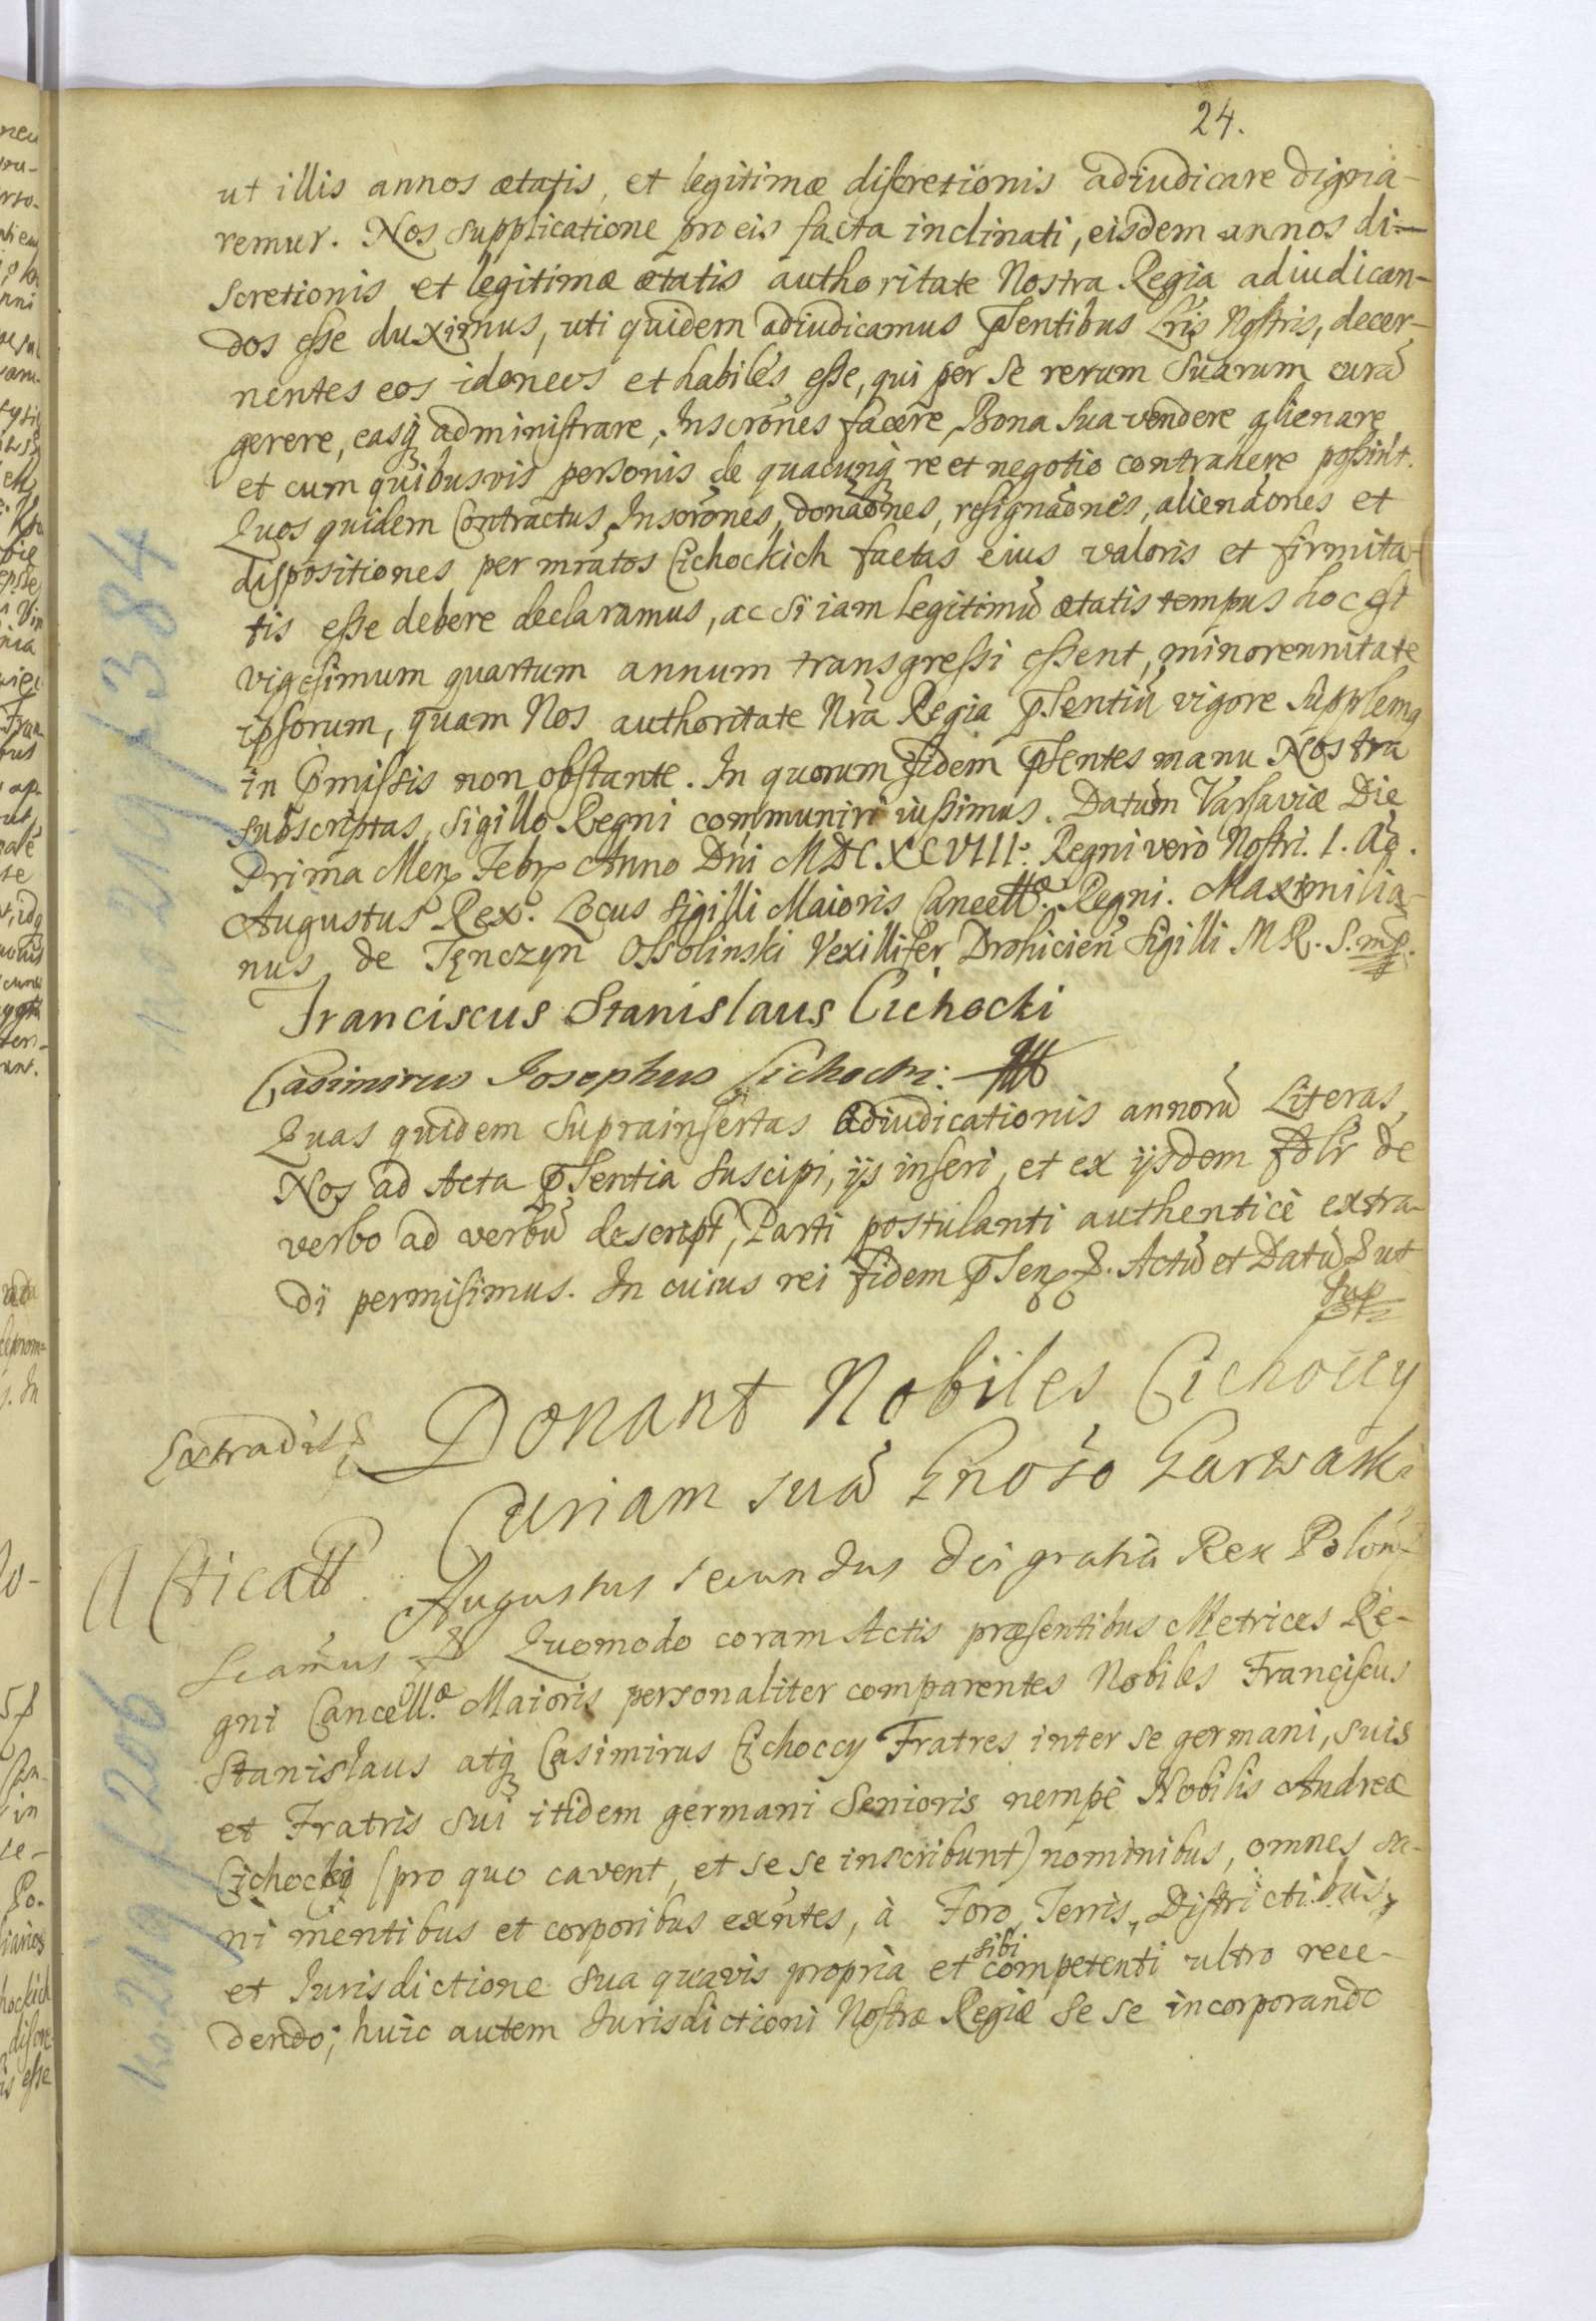 24.
ut illis annos ætatis, et legitimæ discretionis adiudicare digna-
remur. Nos supplicatione pro eis facta inclinati, eisdem annos di-
scretionis et legitimæ ætatis authoritate Nostra Regia adiudican-
dos esse duximus, uti quidem adiudicamus pñsentibus Lris Nostris, decer-
nentes eos idoneos et habiles esse, qui per se rerum suarum curã
gerere, easq; administrare, Inscrõnes facere, Bona sua vendere alienare
et cum quibusvis personis de quacunq; re et negotio contrahere possint.
Quos quidem Contractus, Inscrõnes, donaõnes, resignaõnes, alienaõnes et
dispositiones per mratos Cichockich factas eius valoris et firmita-
tis esse debere declaramus, ac si iam legitimũ ætatis tempus hoc est
vigesimum quartum annum transgressi essent, minorennitate
ipsorum, quam Nos authoritate Nrã Regia pñsentiũ vigore supplemq
in pmissis non obstante. In quorum fidem pñsentes manu Nostra
subscriptas, Sigillo Regni communiri iussimus. Datum Varsaviæ Die
Prima Menẓ Febrẓ Anno Dñi MDCXCVIII. Regni vero Nostri. I. Aõ.
Augustus Rex. Locus Sigilli Maioris Cancellæ. Regni. Maximilia-
nus de Tęnczyn Ossolinski Vexillifer Drohicień Sigilli M R. S. mp.
Franciscus Stanislaus Cichocki
Casimirus Josephus Cichocki.
Quas quidem suprainsertas Adiudicationis annorũ Literas,
Nos ad Acta pñsentia suscipi, ijs inseri, et ex ijsdem fdlr de
verbo ad verbũ descript, Parti postulanti authenticè extra-
di permisimus. In cuius rei fidem pñsenẓ &. Actũ et Datũ ut
sup
Extradit
Donant Nobiles Cichoccy
Curiam suã Gnõso Garwaski
Acticatt
Augustus secundus Dei gratia Rex Poloñ
Scamus & Quomodo coram Actis præsentibus Metrices Re-
gni Cancellæ. Maioris personaliter comparentes Nobiles Franciscus
Stanislaus atq; Casimirus Cichoccy Fratres inter se germani, suis
et Fratris sui itidem germani Senioris nempè Nobilis Andreæ
Cichocki (pro quo cavent, et se se inscribunt) nominibus, omnes sa-
ni mentibus et corporibus exñtes, à Foro, Terris, Districtibus,
et Jurisdictione sua quavis propria et sibi competenti ultro rece-
dendo; huic autem Jurisdictioni Nostræ Regiæ se se incorporando